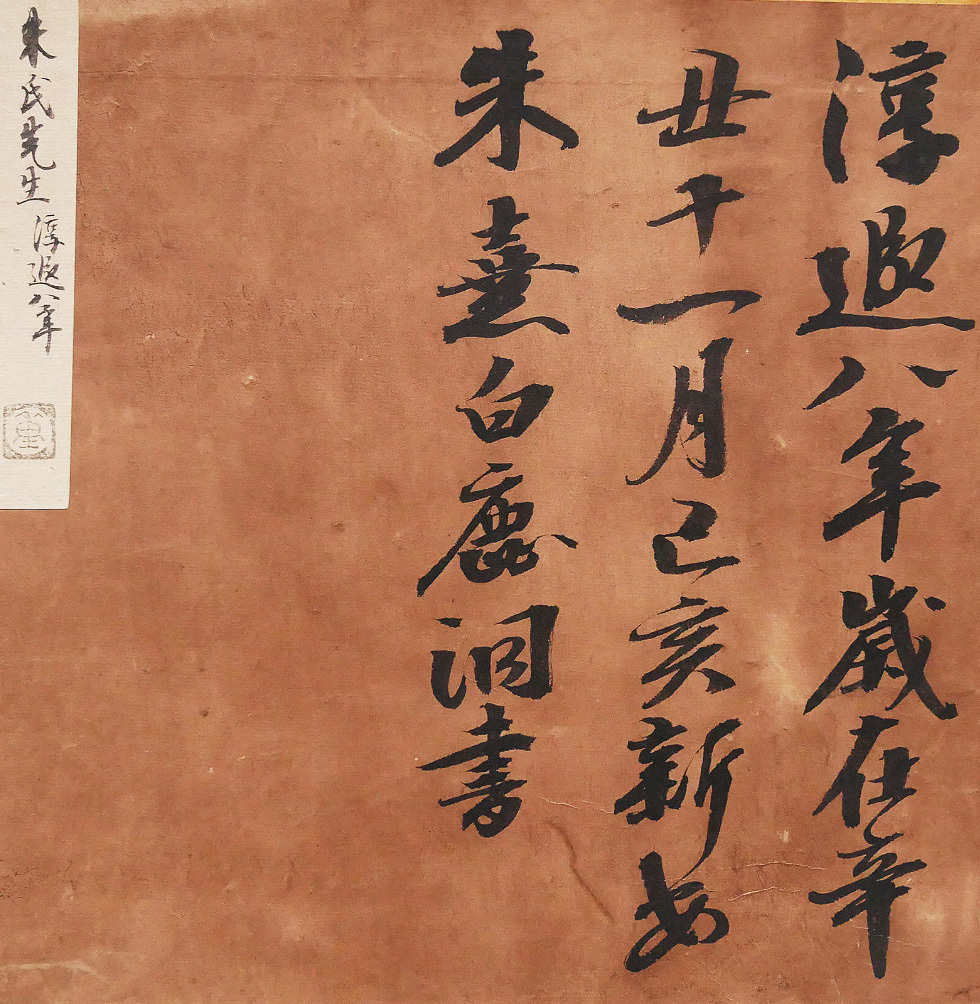 淳遐八年歲在辛
丑十一月己亥新安
朱熹白鹿洞書
朱氏先生 淳遐八年